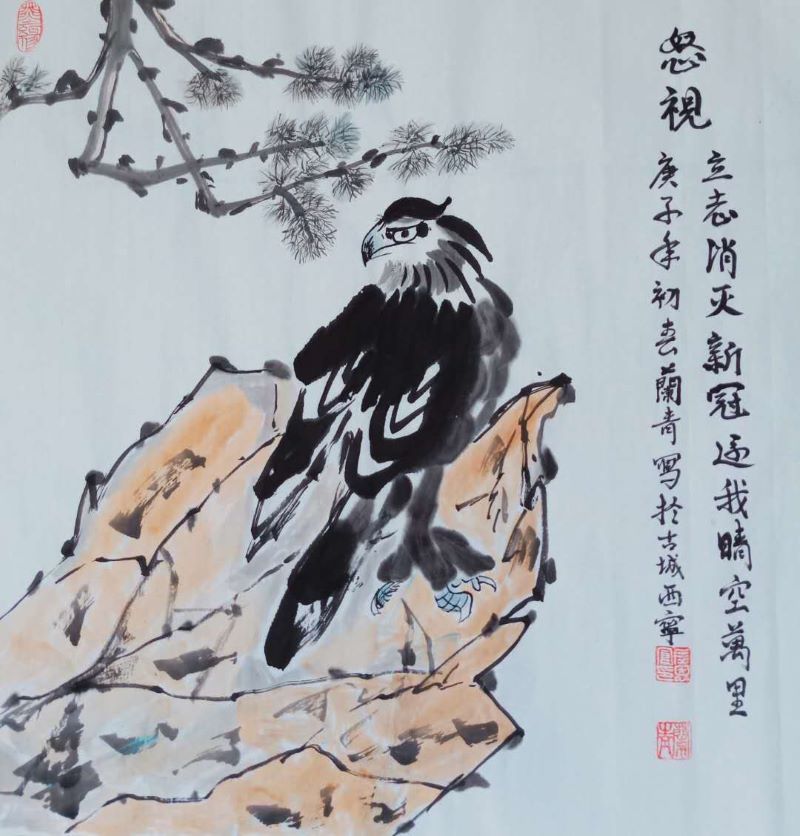 怒視
立志消灭新冠还我晴空萬里
庚子年初春蘭青写於古城西寧